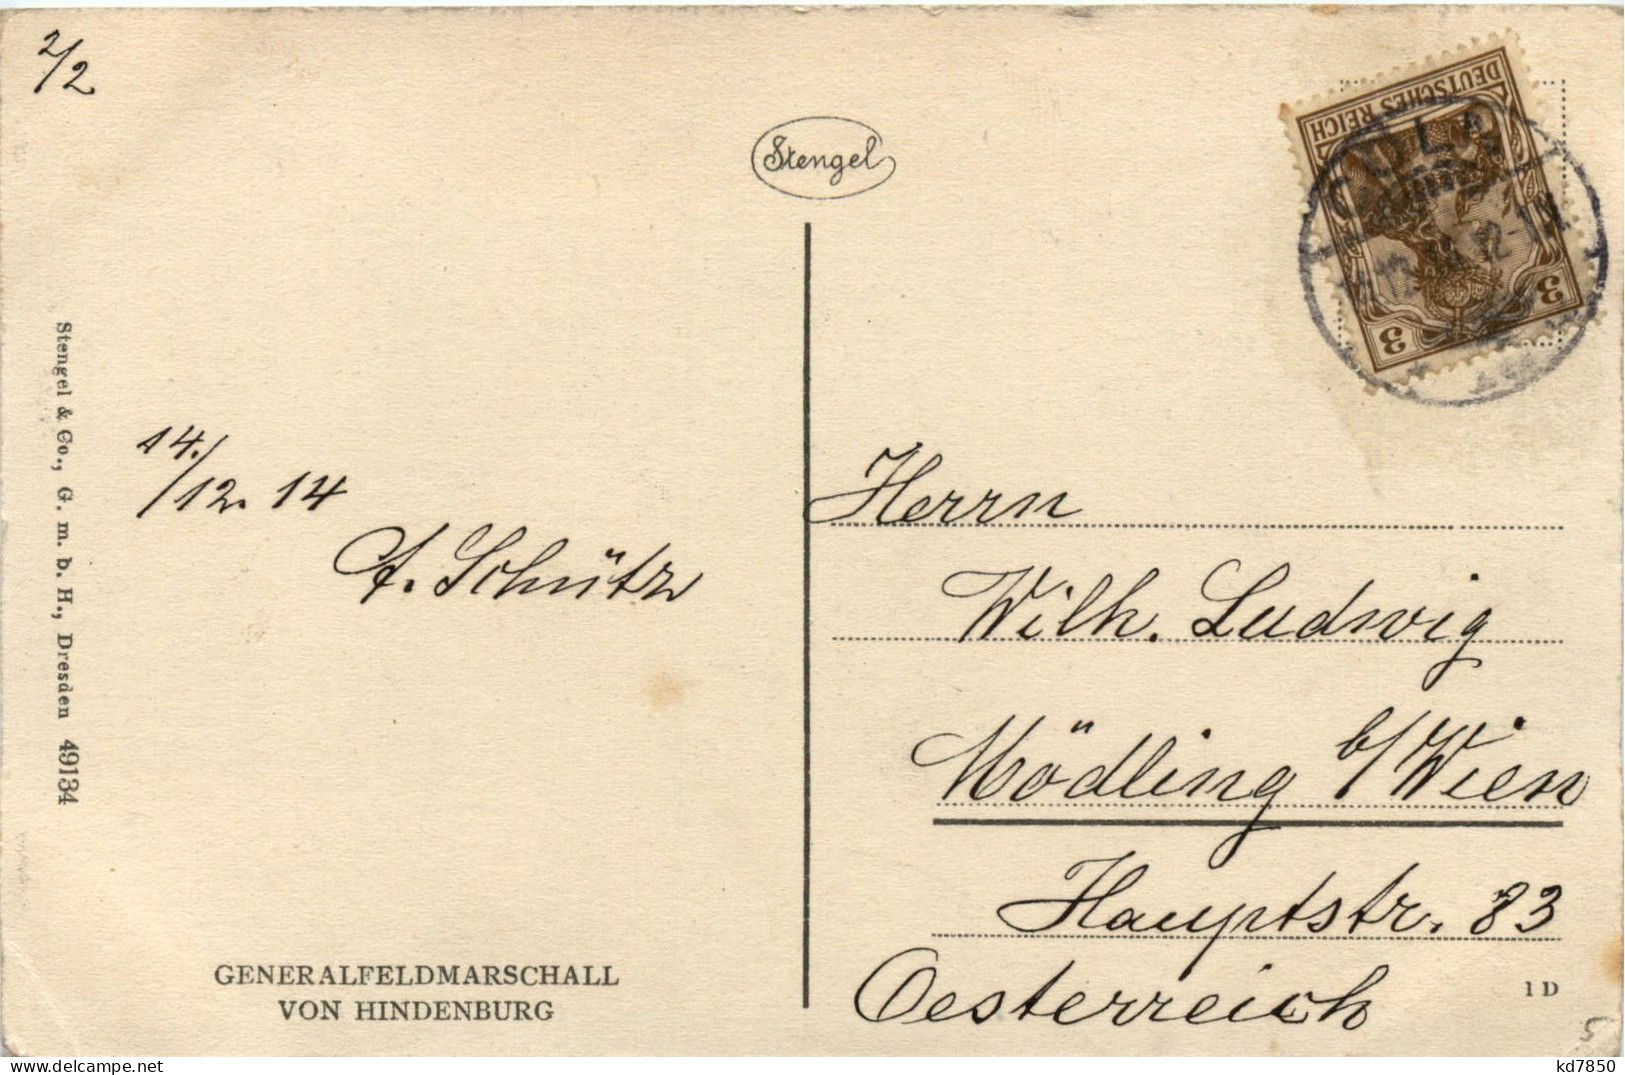 2/2
Stengel
DEUTSCHES REICH
3
3
14./12. 14
A. Schütz
Herrn
Wilh. Ludwig
Mödling b/Wien
Hauptstr. 83
Oesterreich
GENERALFELDMARSCHALL
VON HINDENBURG
Stengel & Co., G. m. b. H., Dresden 49134
1 D
5
kd7850